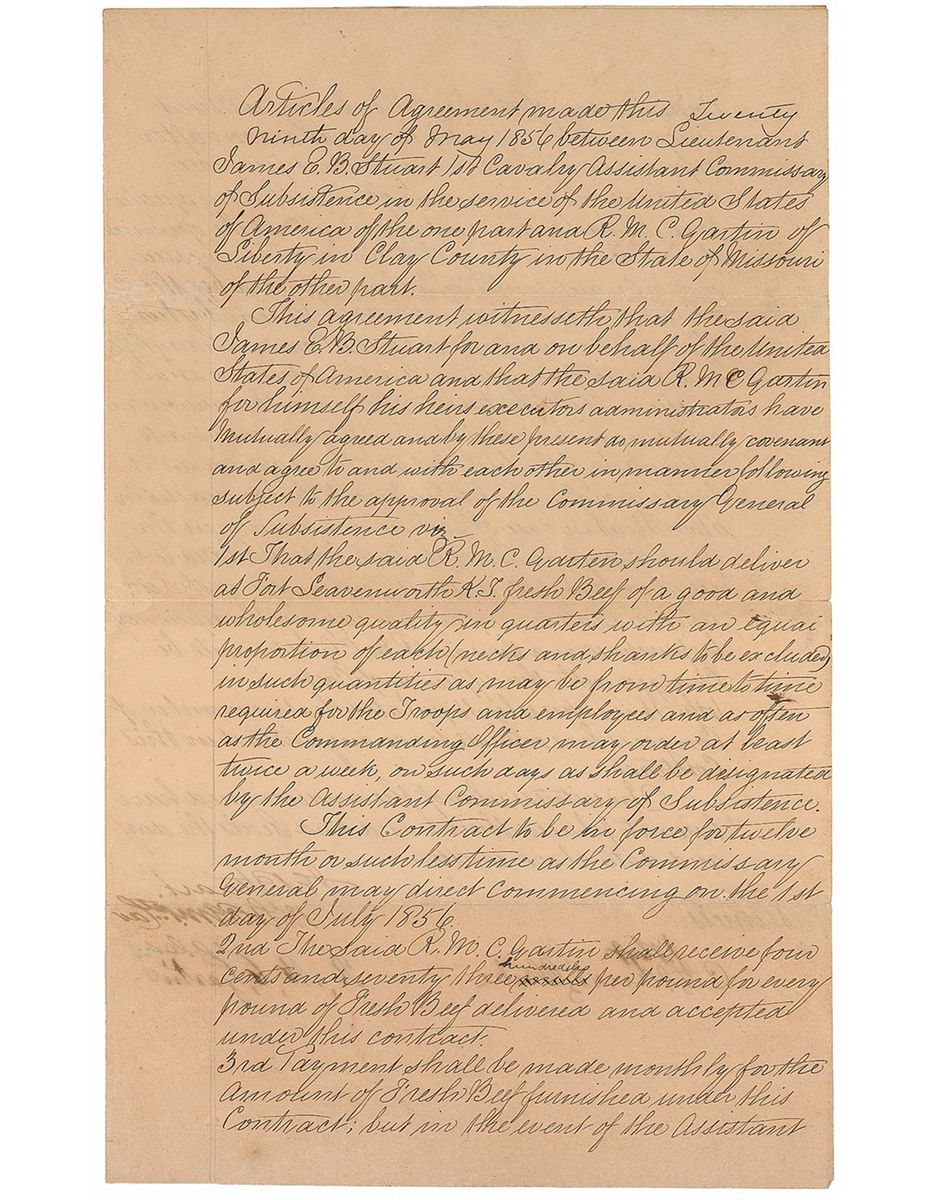 Articles of Agreement made this Twenty
Ninth day of May 1856 between Lieutenant
James E. B. Stuart 1st Cavalry Assistant Commissary
of Subsistence in the service of the United States
of America of the one part and R. M. C. Gartin of
Liberty in Clay County in the State of Missouri
of the other part.
This agreement witnesseth that the said
James E. B. Stuart for and on behalf of the United
States of America and that the said R. M C Gartin
for himself his heirs executors administrators have
Mutually agreed and by these present do mutually covenant
and agree to and with each other in manner following
subject to the approval of the Commissary General
of Subsistence viz
1st That the said R. M. C. Gartin should deliver
at Fort Leavenworth K. T. fresh Beef of a good and
wholesome quality in quarters with an equal
proportion of each (necks and shanks to be excluded)
in such quantities as may be from time to time
required for the Troops and employees and as often
as the Commanding Officer may order at least
twice a week, on such days as shall be designated
by the Assistant Commissary of Subsistence.
This Contract to be in force for twelve
month or such less time as the Commissary
General may direct commencing on the 1st
day of July 1856.
2nd The said R. M. C. Gartin shall receive four
cents and seventy three hundredths per pound for every
pound of Fresh Beef delivered and accepted
under this contract.
3rd Payment shall be made monthly for the
Amount of Fresh Beef furnished under this
Contract; but in the event of the Assistant